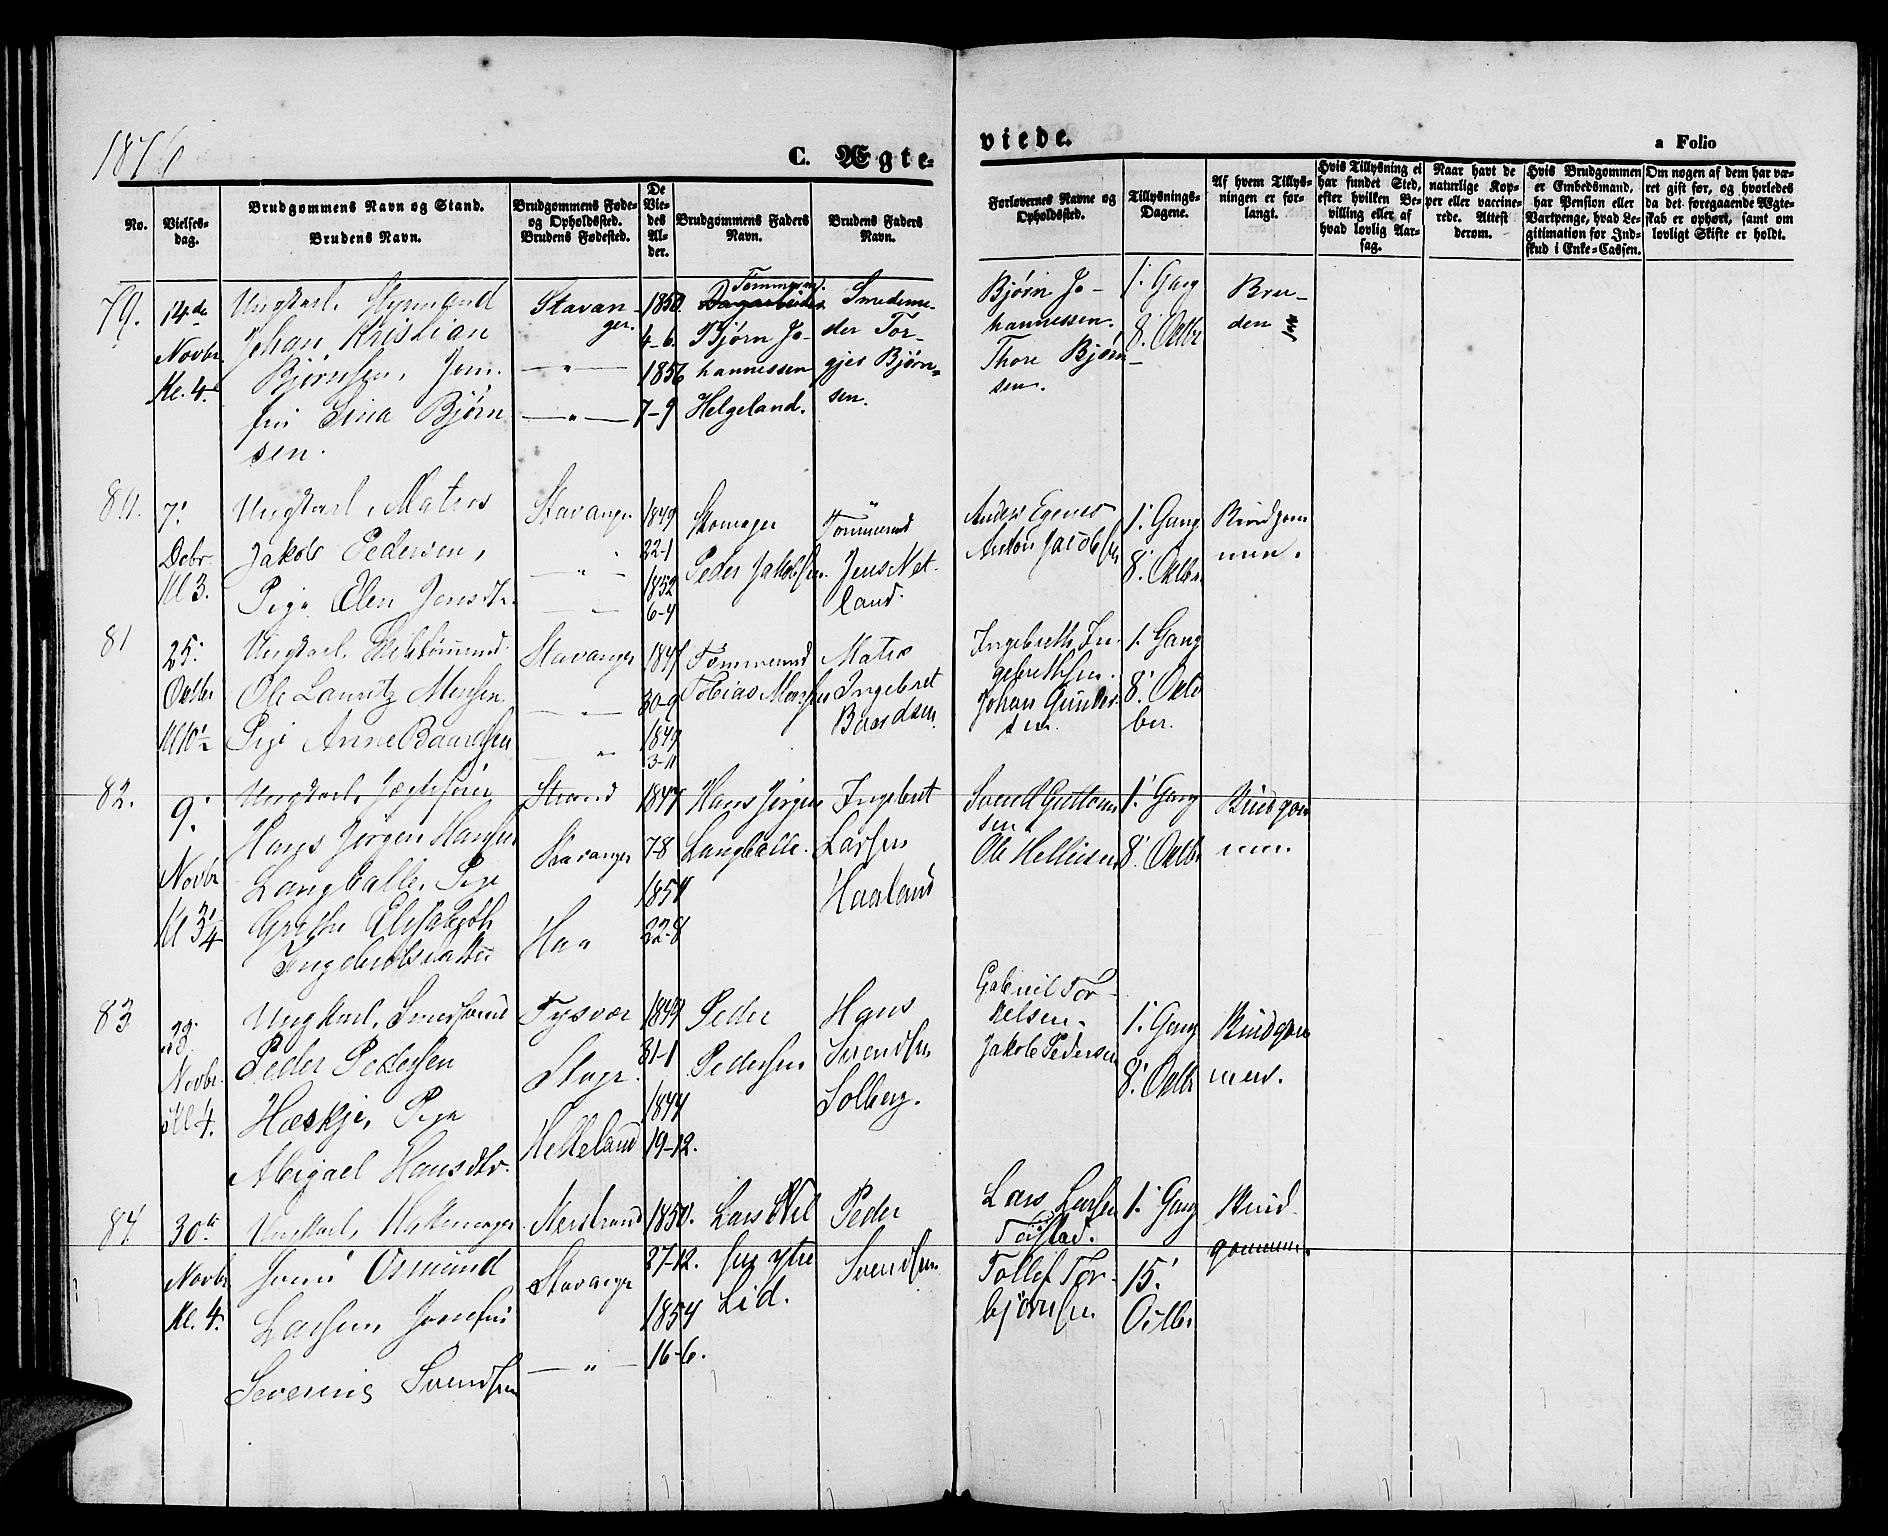 1876
C. Ægte-
viede.
a Folio
No.
Vielses-
dag.
Brudgommens Navn og Stand.
Brudens Navn.
Brudgommens Føde-
og Opholdssted.
Brudens Fødested.
De
Vie-
des
Al-
der.
Brudgommens Faders
Navn.
Brudens Faders
Navn.
Forlovernes Navne og
Opholdssted.
Tillysnings-
Dagene.
Af hvem Tillys-
ningen er for-
langt.
Hvis Tillysning ei
har fundet Sted,
efter hvilken Be-
villing eller af
hvad lovlig Aar-
sag.
Naar havt de
naturlige Kop-
per eller vaccine-
rede. Attest
derom.
Hvis Brudgommen
er Embedsmand,
har Pension eller
Vartpenge, hvad Le-
gitimation for Ind-
skud i Enke-Cassen.
Om nogen af dem har væ-
ret gift før, og hvorledes
da det foregaaende Ægte-
skab er ophørt, samt om
lovligt Skifte er holdt.
79.
14de
Novbr
Kl. 4.
Ungkarl, Styrmand
Johan Kristian
Bjørnsen, Jom-
fru Sina Bjørn
sen.
Stavan-
ger.
— " —
— " —
1850.
4-6.
1856
7-9
Tømmermd.
Dagarbeider
Bjørn Jo-
hannessen
Helgeland.
Smedeme-
ster Tor-
gjer Bjørn-
sen.
Bjørn Jo-
hannessen.
Thore Bjørn-
sen.
1. Gang
8. Octbr
Bru-
den
80.
7.
Debr.
Kl 3.
Ungkarl, Matros
Jakob Pedersen,
Pige Elen Jensdtr.
Stavanger
— " —
— " —
1849
22-1
1852
6-4
Skomager
Peder Jakobsen.
Tømmermd
Jens Net-
land.
Anders Egenes
Anton Jacobsen
1. Gang
8. Octbr.
Brudgom
men.
81
25.
Octbr
Kl 10½
Ungkarl, tømmermd.
Ole Lauritz Monsen.
Pige Anne Baardsen
Stavanger
— " —
— " —
1847
30-9
1849
3-11
Tømmermd
Tobias Monsen
Matros
Ingebret
Baardsen.
Ingebreth In-
gebrethsen.
Johan Gunder-
sen.
1. Gang
8. Octo
ber.
82.
9.
Novbr
Kl 3¼
Ungkarl,
Hans Jørgen Hansen
Langballe, Pige
Grethe Elisabeth
Ingebretsdatter
Strand
Stavanger
Haa
1847
7-8
1854
22-8
Hans Jørgen
Langballe.
Ingebret
Larsen
Haaland
Svend Guttorm
sen
Ole Helliesen
1. Gang
8. Octbr
Brudgom
men.
83
23.
Novbr.
Kl 4.
Ungkarl, Smedsvend
Peder Pedersen
Hæskje, Pige
Abigael Hansdtr.
Tysvær
Stvgr.
Helleland
1849
31-1
1844
19-12.
Peder
Pedersen
Hans
Svendsen
Solberg.
Gabriel Tor-
kelsen.
Jakob Pedersen
1. Gang
8. Octbr
Brudgom
men.
84
30te
Novbr
Kl. 4.
Ungkarl,
Osmund
Larsen, Jomfru
Severine Svendsen
Nerstrand
Stavanger
— " —
1850.
27-12.
1854
16-6.
Lars Nil
sen ytre
Lid.
Peder
Svendsen
Lars Larsen
Tøistad.
Tollef Tor-
bjørnsen
1. Gang
15.
Octbr
Brud-
gommen.